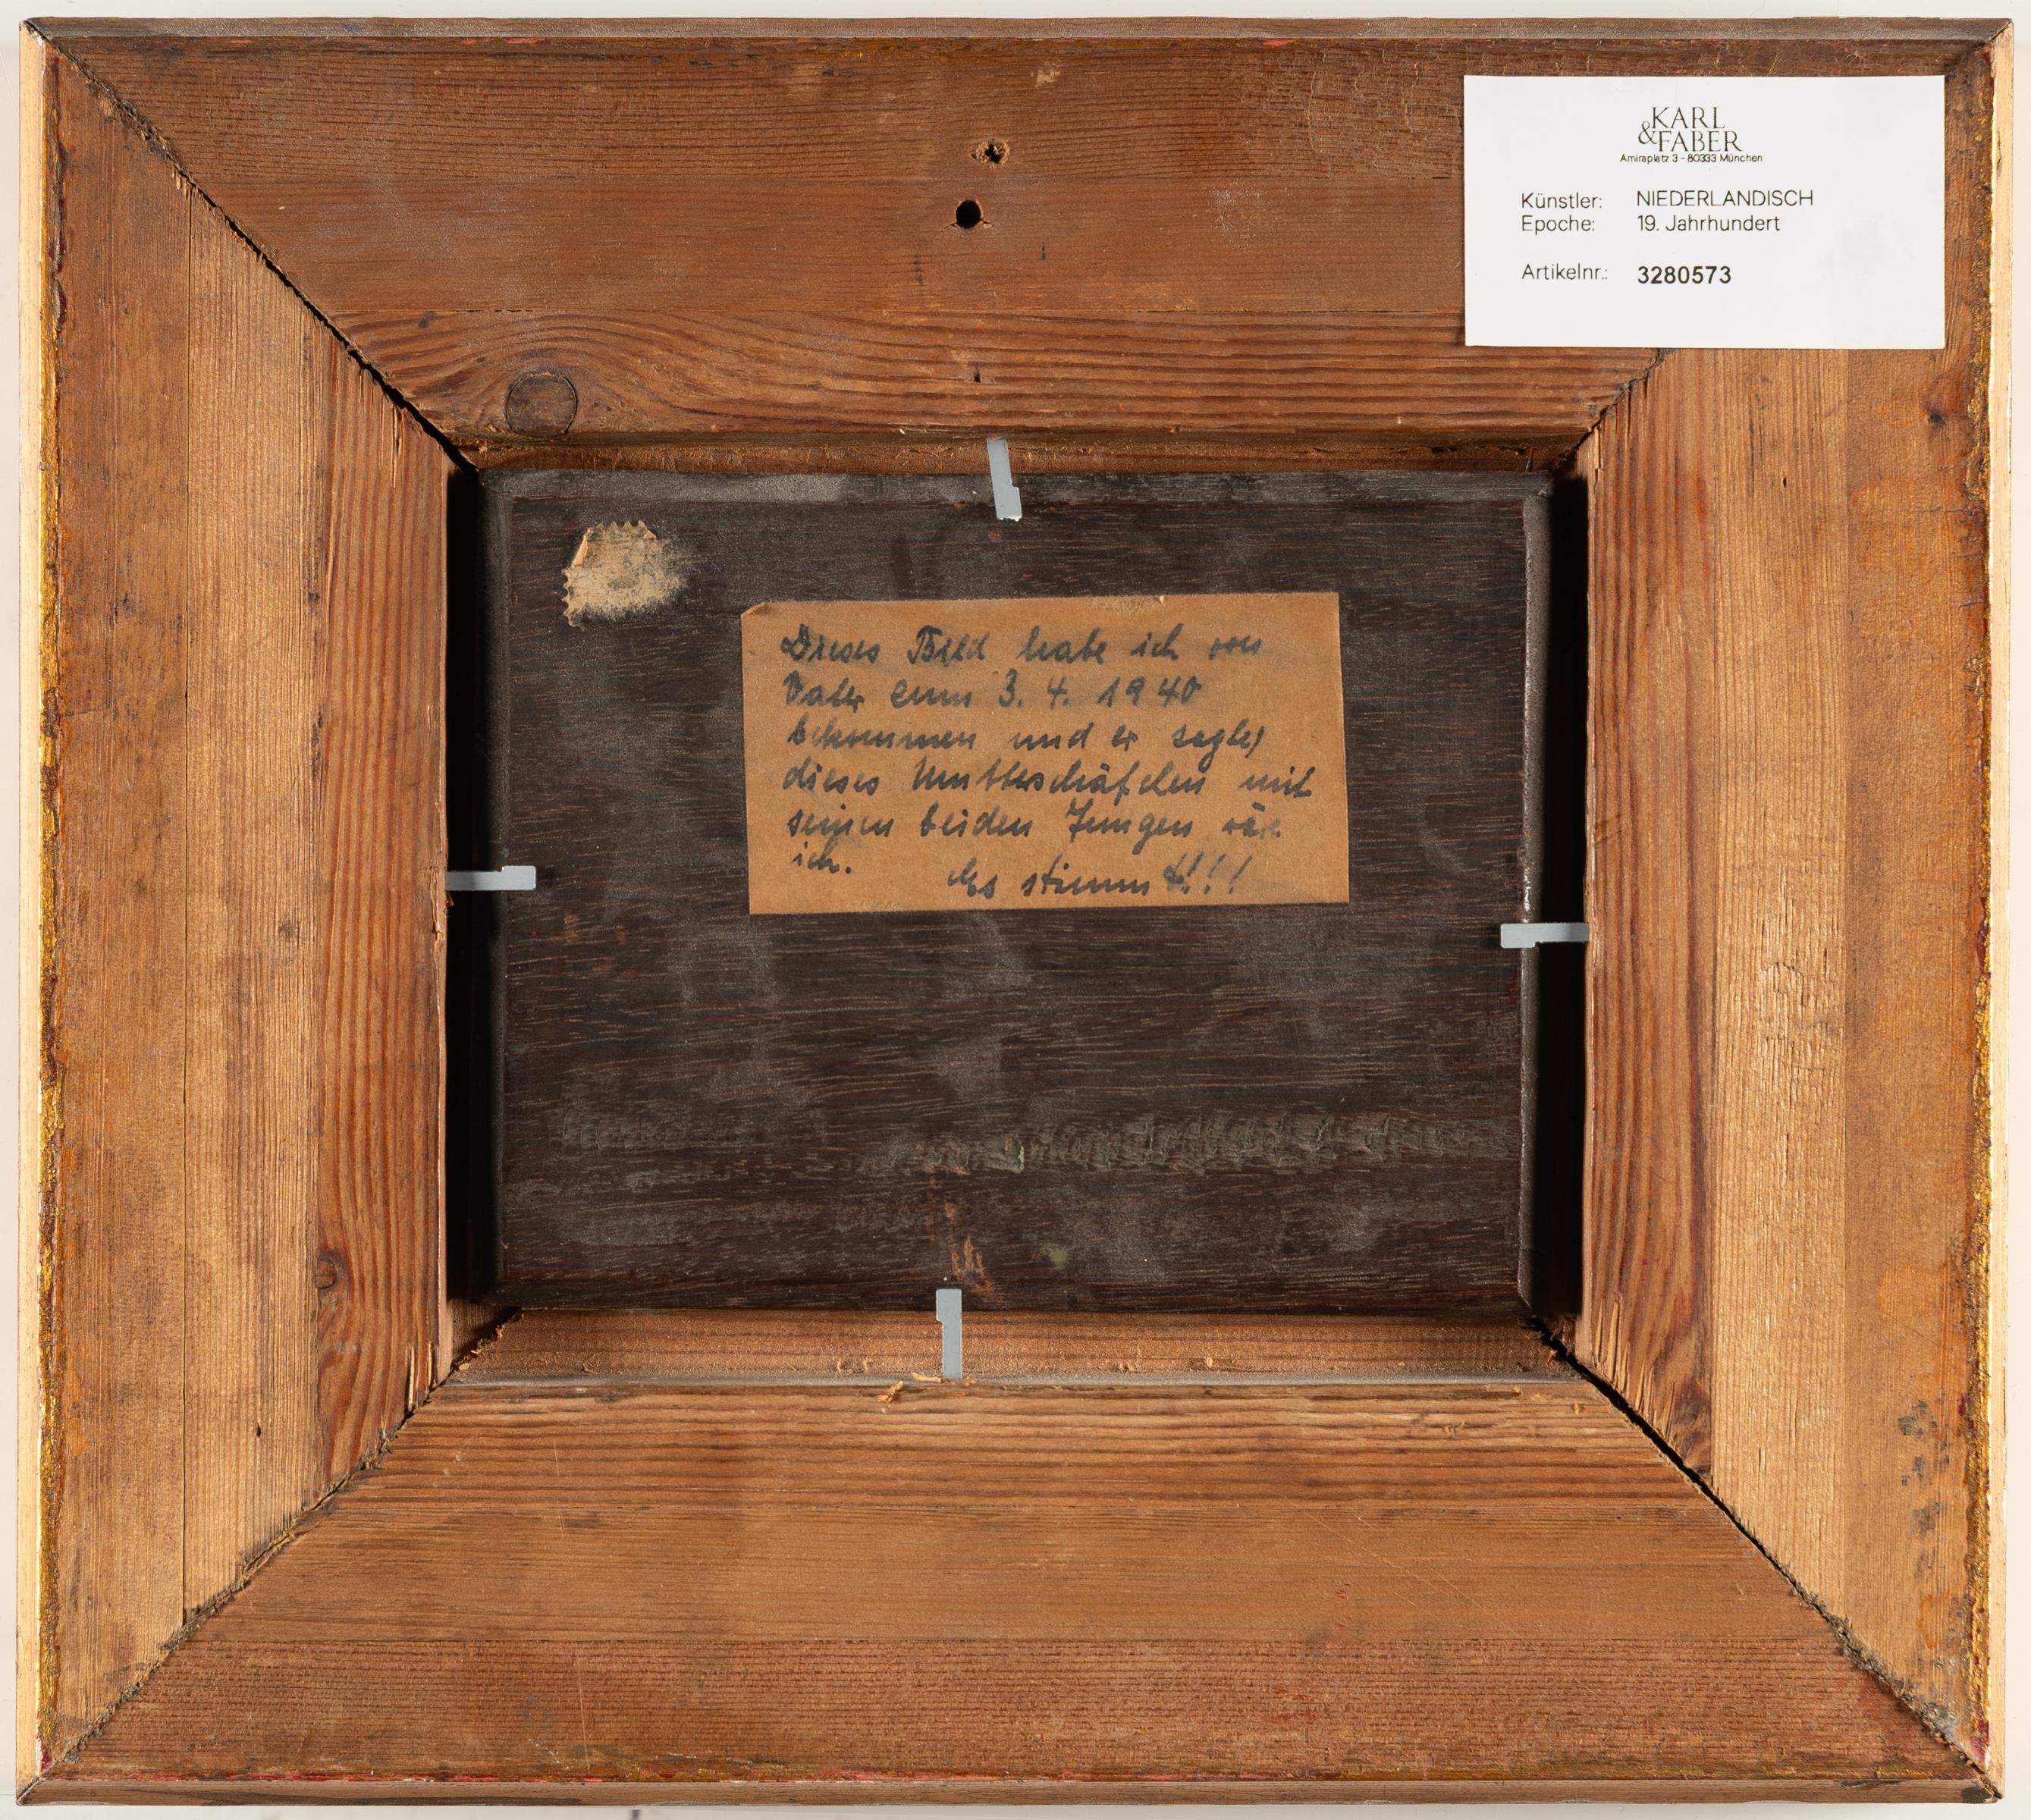 KARL
&FABER
Amiraplatz 3 - 80333 München
Künstler: NIEDERLANDISCH
Epoche: 19. Jahrhundert
Artikelnr.: 3280573
Dieses Bild habe ich von
Vater zum 3. 4. 1940
bekommen und er sagte,
dieses Mutterschäfchen mit
seinen beiden Jungen wäre
ich.
Es stimmt!!!